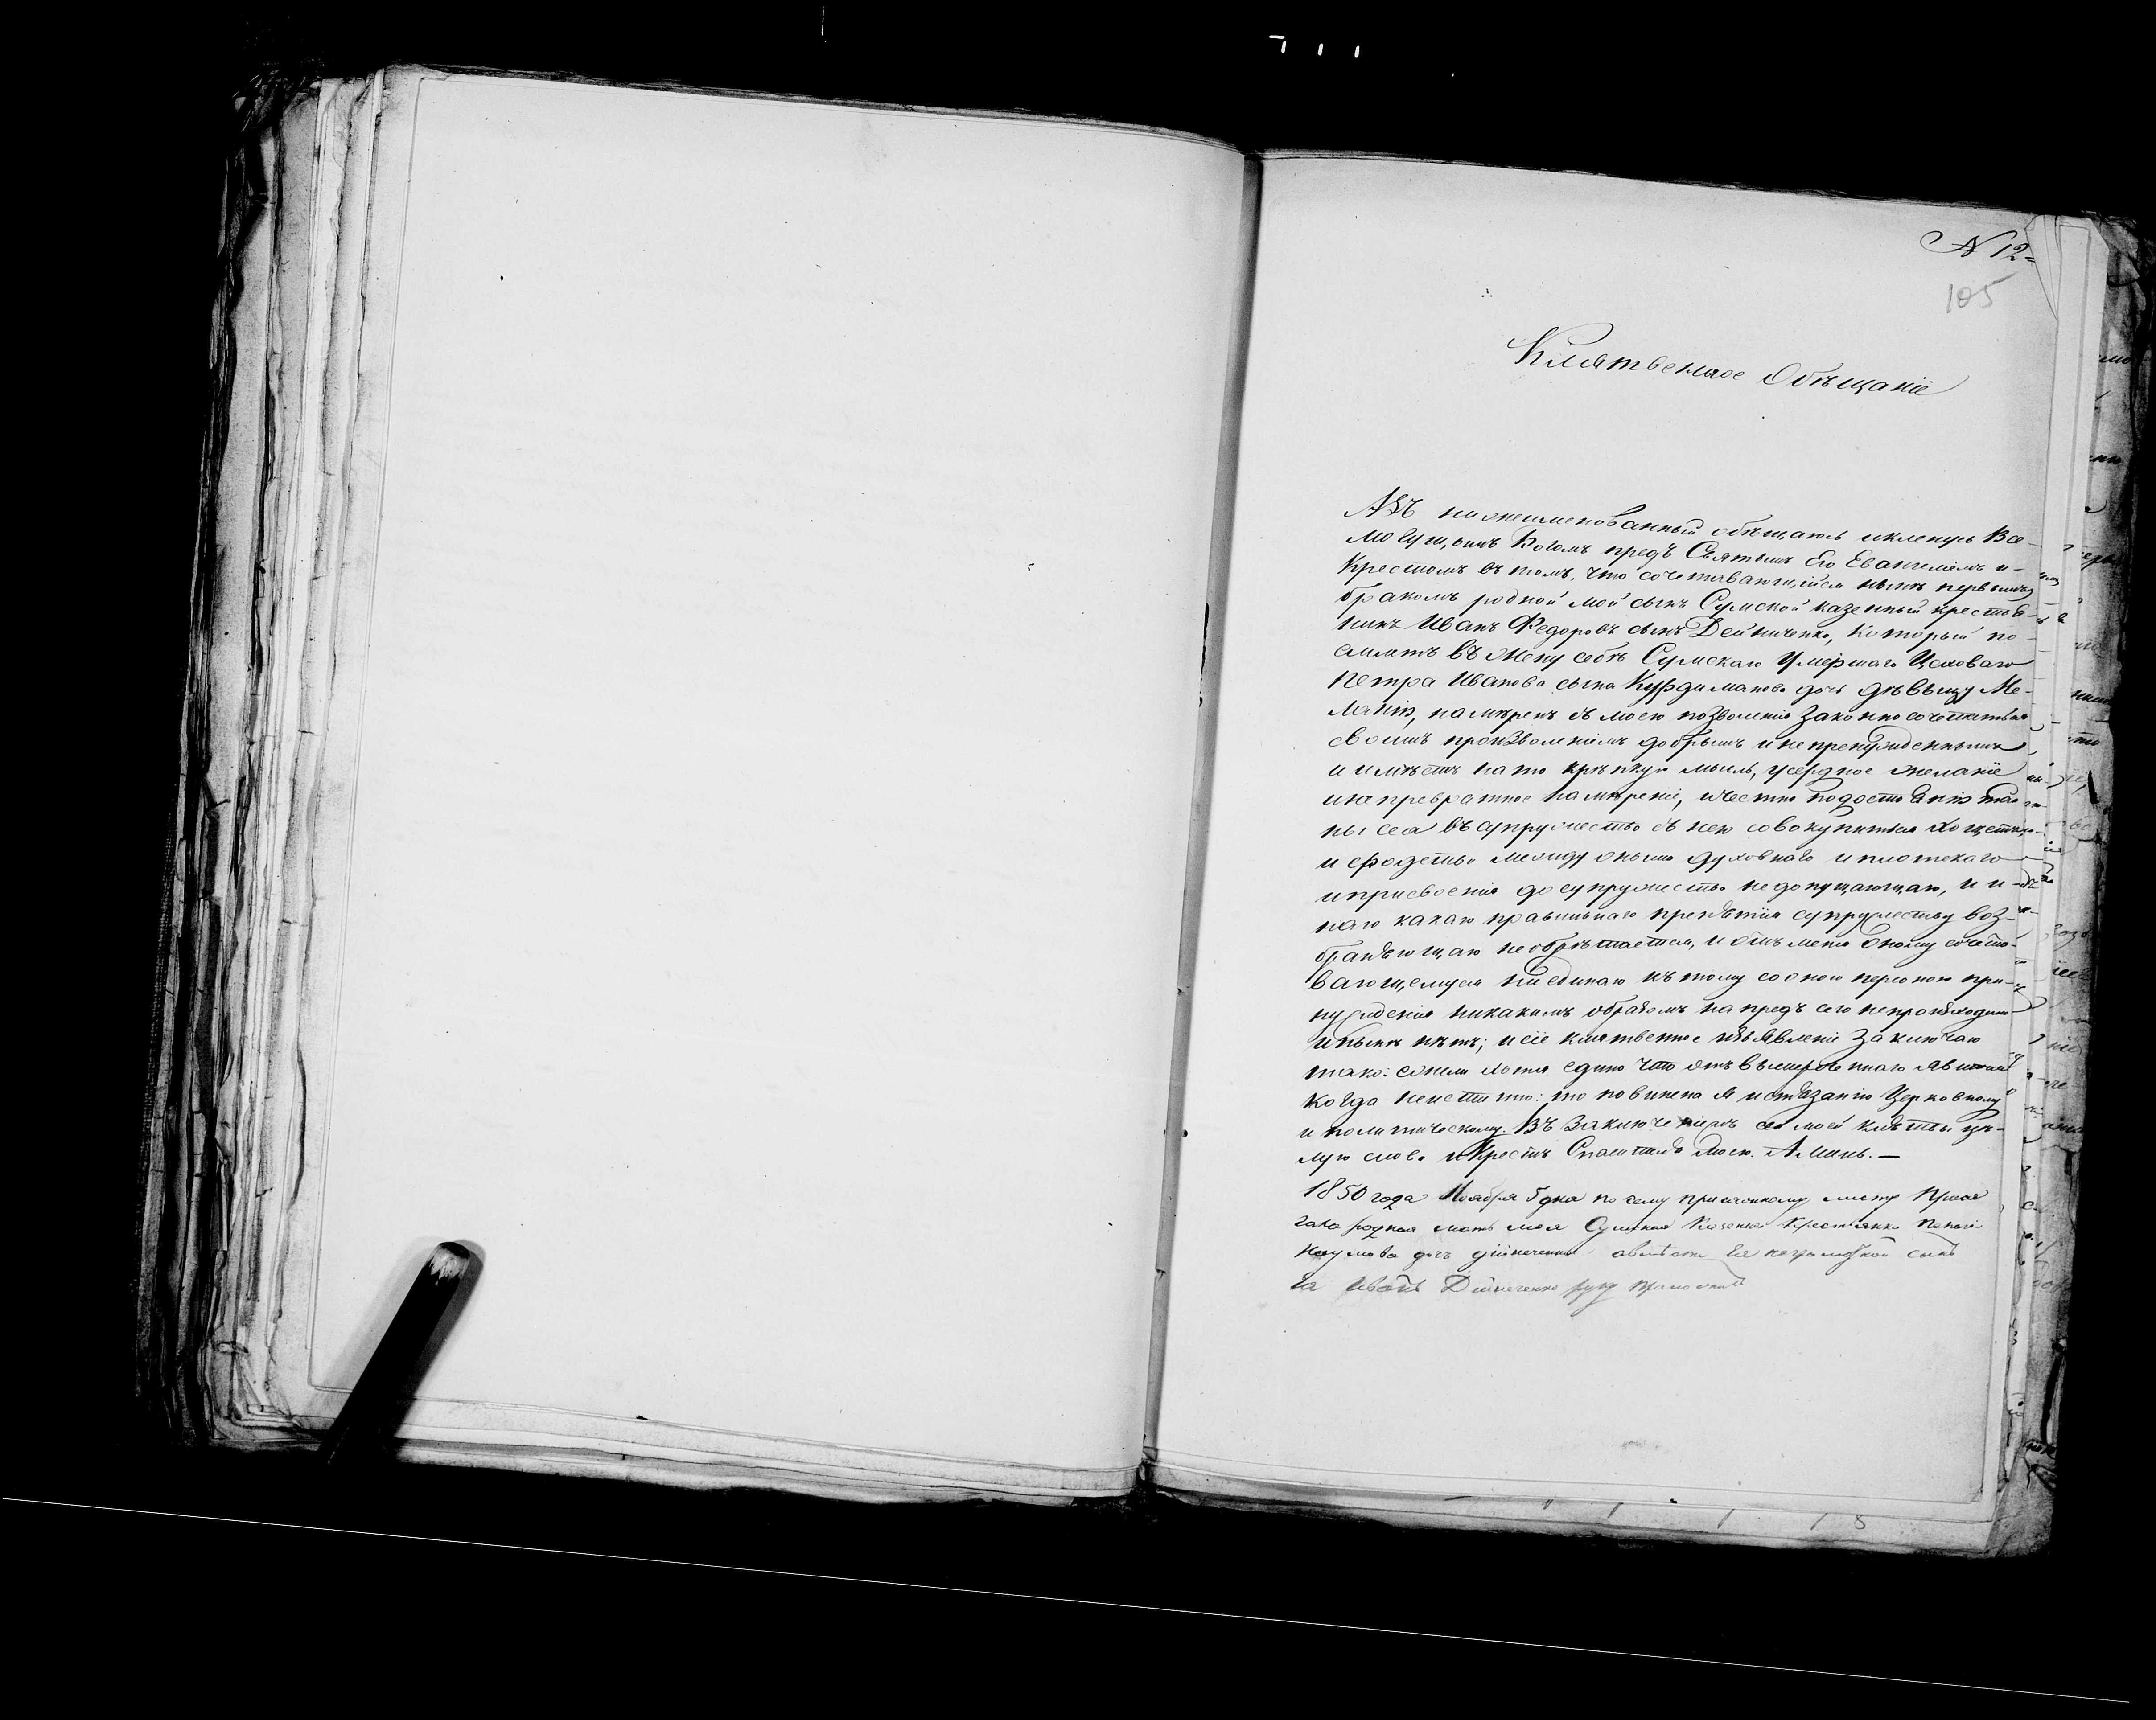 N 12=
105
Клятвенное Обѣщаніе
Азъ нижеименованный обѣщаюсь и кленусь Все-
могущимъ Богомъ предъ Святымъ Его Евангеліемъ и
Крестомъ въ томъ, что сочетавающійся нынѣ первымъ
бракомъ родной мой сынъ Сумской казенный крестья-
нинъ Иванъ Федоровъ сынъ Дейниченко, который по-
емлетъ въ жену себѣ Сумскаго умершаго Цеховаго
Петра Иванова сына Курдиманова дочь дѣвыцу Ме-
ланію, намѣренъ съ моего позволенія законно сочетаться
своимъ произволеніемъ добрымъ и непренужденнымъ
и имѣетъ на то крѣпкую мысль, усердное желаніе
и непревратное намѣреніе, и честно по достоянію тай-
ны сея въ супружество съ нею совокупиться хощетъ,
и сродства между оными духовнаго и плотскаго
и присвоенія до супружества недопущающаго, и и-
наго какаго правильнаго препятія супружеству воз-
браняющаго необрѣтается, и отъ меня оному сочета-
вающемуся ни единаго къ тому со оною персоною при-
нужденія никакимъ образомъ напредъ сего непроисходило
и нынѣ нѣтъ; и сіе клятвенное изъявленіе заключаю
тако: ежели хотя едино что отъ вышереченнаго явится
когда неистинно: то повинена я истязанію Церковному
и политическому. Въ заключеніежъ сей моей клятвы цѣ-
лую слова и Крестъ Спасителя моего. Аминь.—
1850 года Ноября 5 дня по сему присяжному листу присе
гала родная мать моя Сумская Казенная Крестьянка
Наумова дочь Дійнеченкова а вмѣсто Ее неграмотной сынъ
Ея Иванъ Дийнеченко руку приложилъ